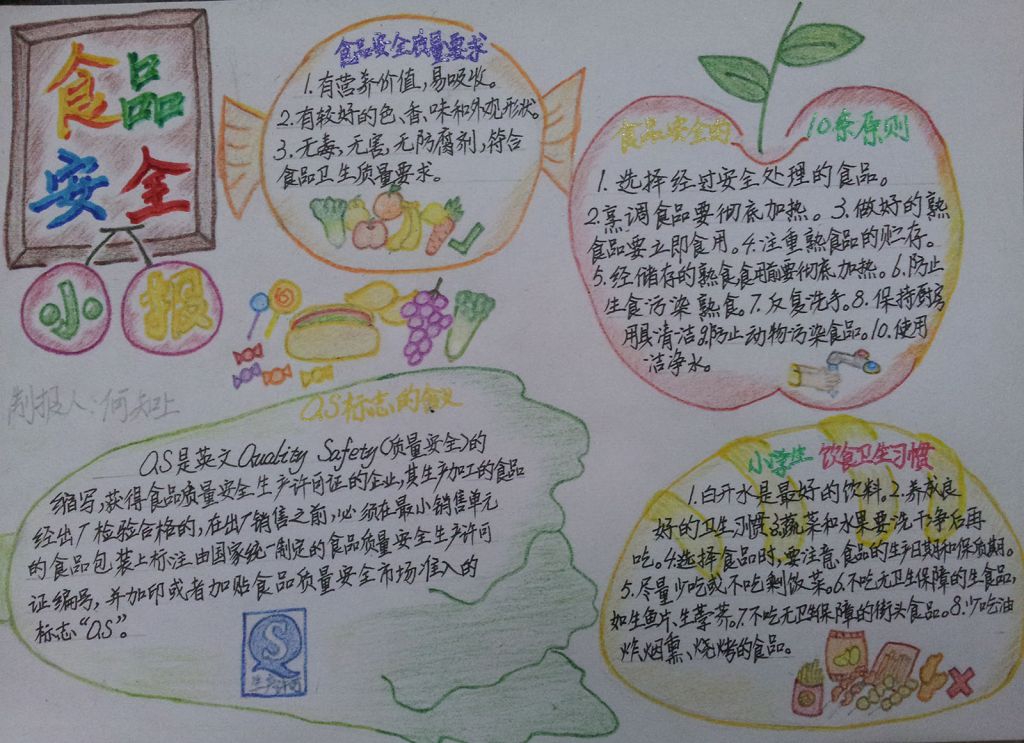 食品
安全
小报
食品安全质量要求
1.有营养价值,易吸收。
2.有较好的色、香、味和外观形状。
3.无毒,无害,无防腐剂,符合
食品卫生质量要求。
食品安全的 10条原则
1.选择经过安全处理的食品。
2.烹调食品要彻底加热。3.做好的熟
食品要立即食用。4.注重熟食品的贮存。
5.经储存的熟食食用前要彻底加热。6.防止
生食污染熟食。7.反复洗手。8.保持厨房
用具清洁。9防止动物污染食品。10.使用
洁净水。
制报人:何
Q.S标志的含义
Q.S是英文Quality Safety(质量安全)的
缩写,获得食品质量安全生产许可证的企业,其生产加工的食品
经出厂检验合格的,在出厂销售之前,必须在最小销售单元
的食品包装上标注由国家统一制定的食品质量安全生产许可
证编号,并加印或者加贴食品质量安全市场准入的
标志“Q.S”。
QS
生产许可
小学生 饮食卫生习惯
1.白开水是最好的饮料。2.养成良
好的卫生习惯。3.蔬菜和水果要洗干净后再
吃。4.选择食品时,要注意食品的生产日期和保质期。
5.尽量少吃或不吃剩饭菜。6.不吃无卫生保障的生食品,
如生鱼片、生荸荠。7.不吃无卫生保障的街头食品。8.少吃油
炸、烟熏、烧烤的食品。